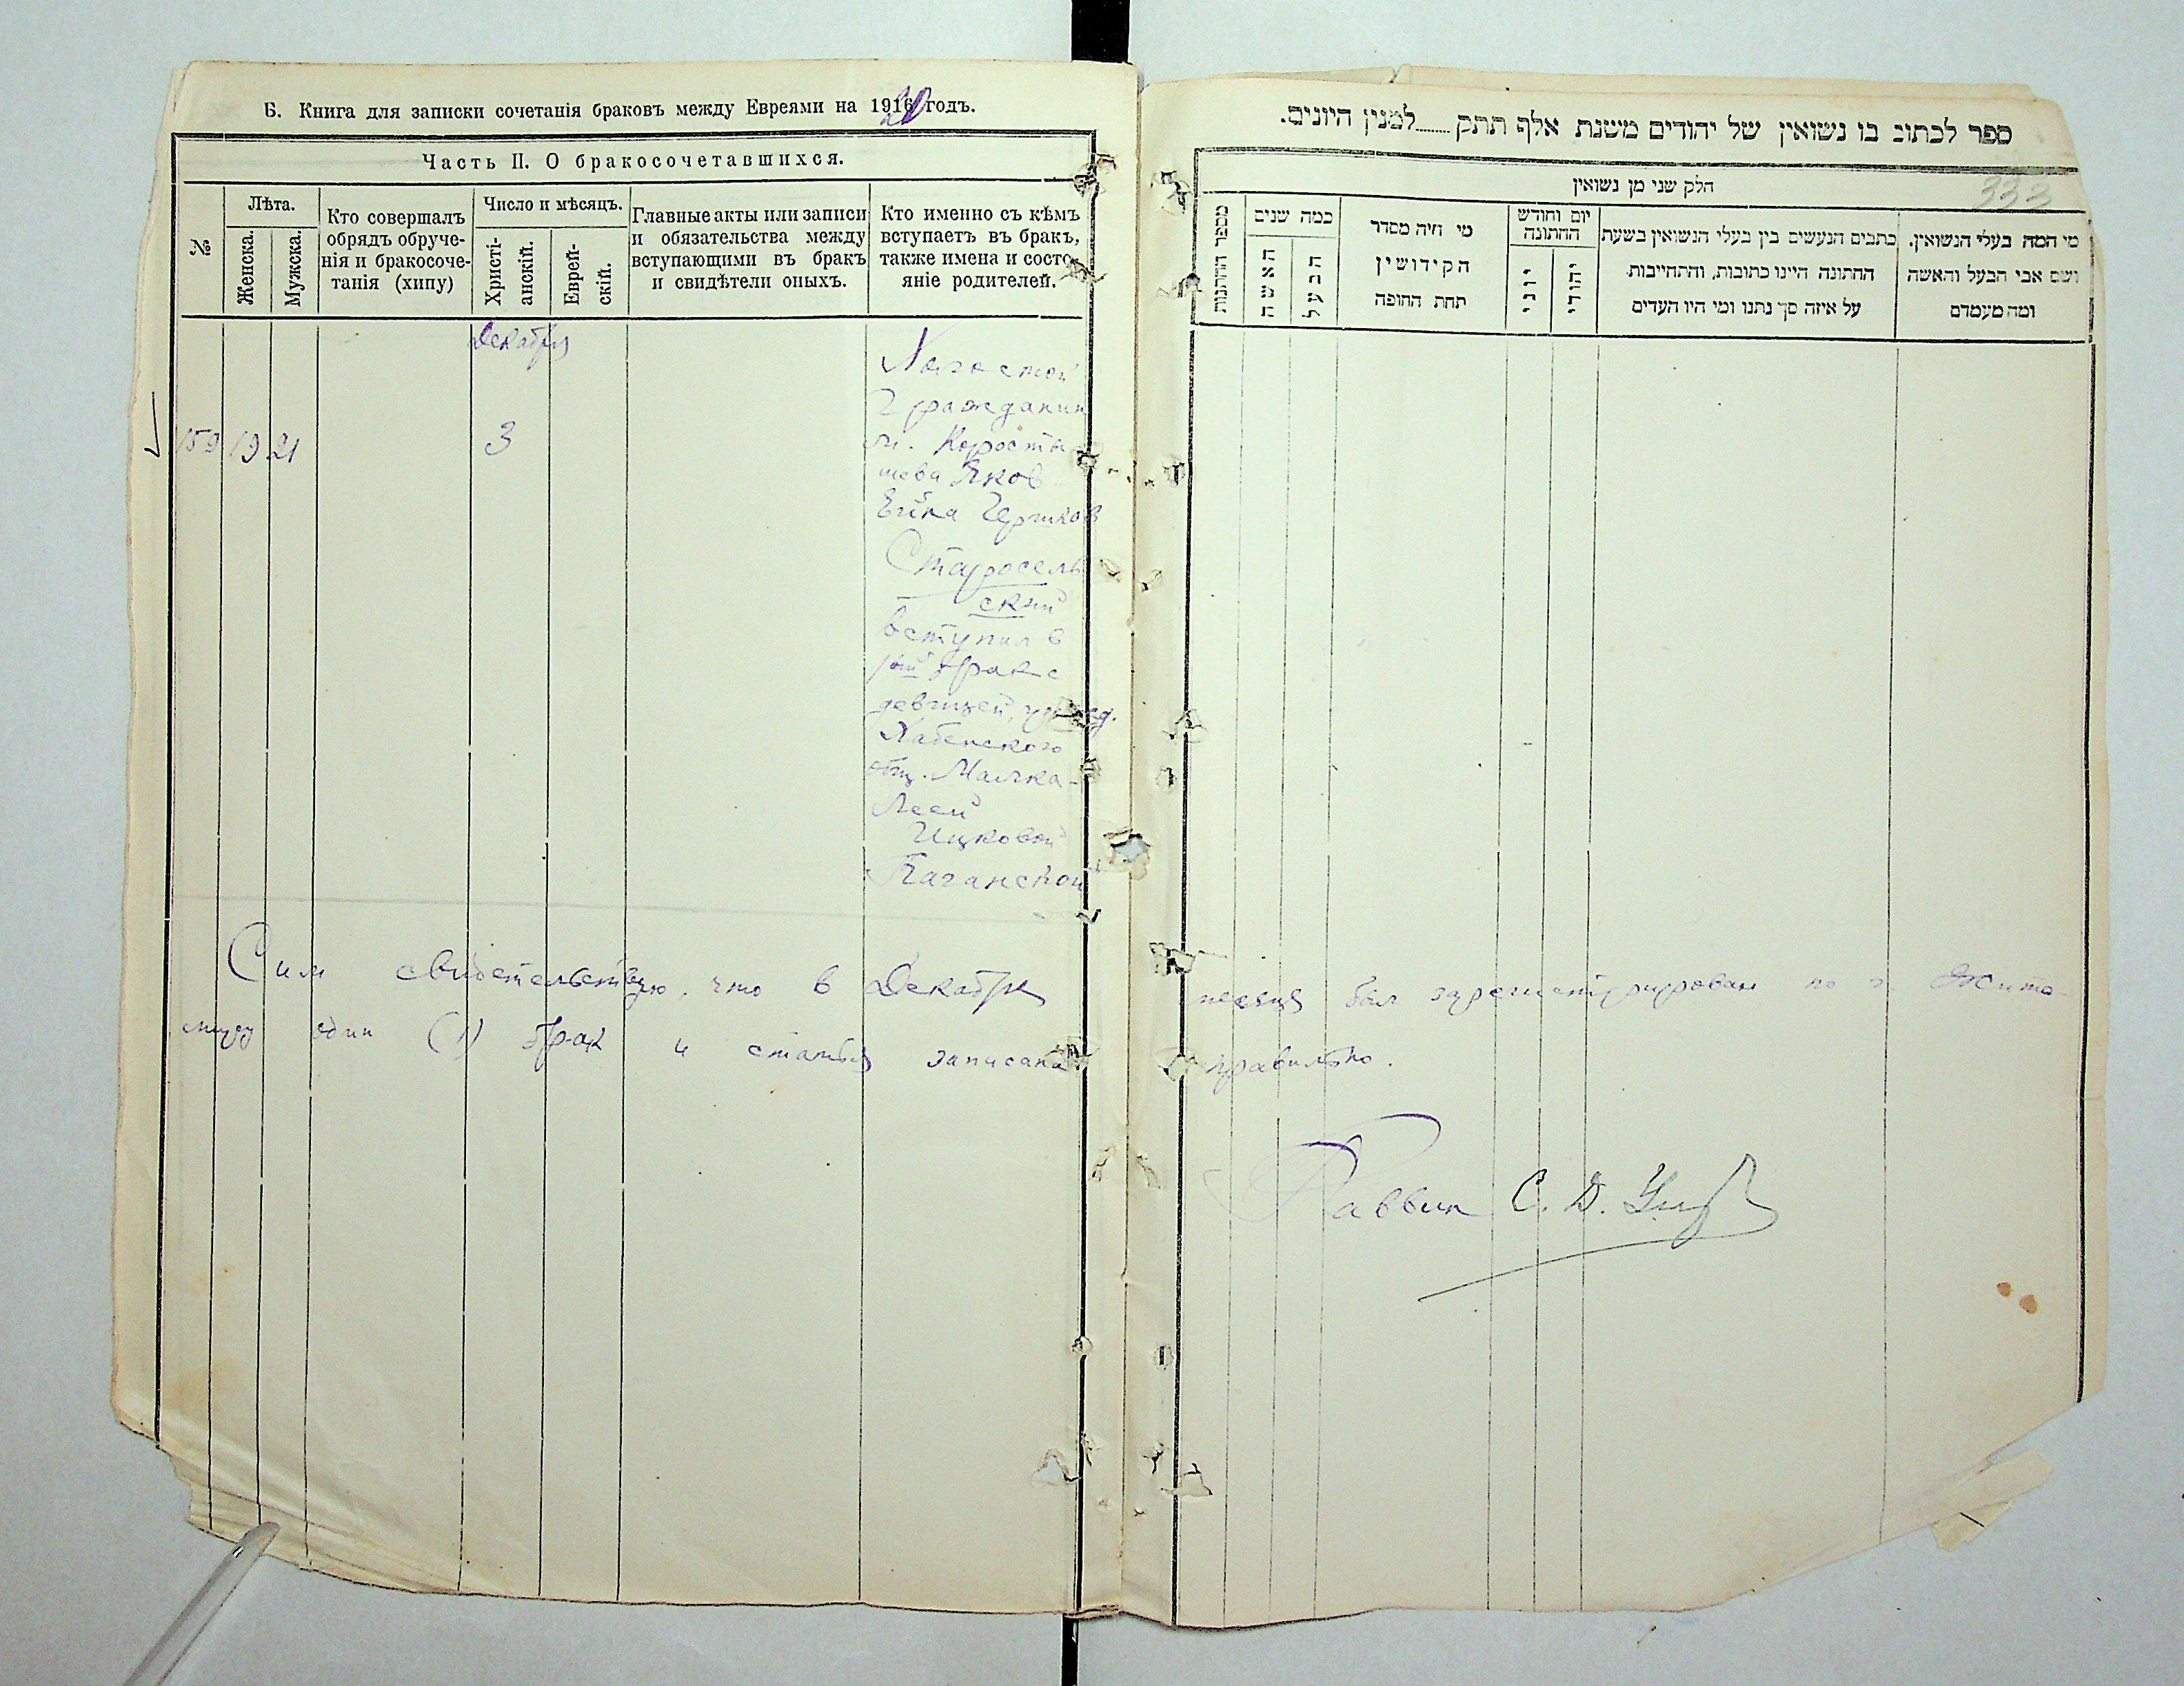 Б. Книга для записки сочетанія браковъ между Евреями на 1920 годъ.
Часть II. О бракосочетавшихся.
№
Лѣта.
Женска.
Мужска.
Кто совершалъ
обрядъ обруче-
нія и бракосоче-
танія (хипу)
Число и мѣсяцъ.
Христі-
анскій.
Еврей-
скій.
Главные акты или записи
и обязательства между
вступающими въ бракъ
и свидѣтели оныхъ.
Кто именно съ кѣмъ
вступаетъ въ бракъ,
также имена и состо-
яніе родителей.
Декабря
159 19 21 3
Холостой
гражданин
м. Коросты-
шева Яков-
Гершков
Старосель
ский
вступил в
1ый брак с
девицей,
Хабенского
общ. Малка-
Леей
Ицковой
Каганской
Сим свидетельствую, что в Декабре
мире один (1) брак и статья записана
ספר לכתוב בו נשואין של יהודים משנת אלף תתק למנין היונים.
333
חלק שני מן נשואין
מספר החתונות
כמה שנים
האשה
הבעל
מי היה מסדר
הקידושין
תחת החופה
יום וחודש
החתונה
יוני
יהודי
כתבים הנעשים בין בעלי הנשואין בשעת
החתונה היינו כתובות, והתחייבות
על איזה סך נתנו ומי היו העדים
מי המה בעלי הנשואין,
ושם אבי הבעל והאשה
ומה מעמדם
месяце был зарегистрирован по г. Жито-
правильно.
Раввин С. Д.